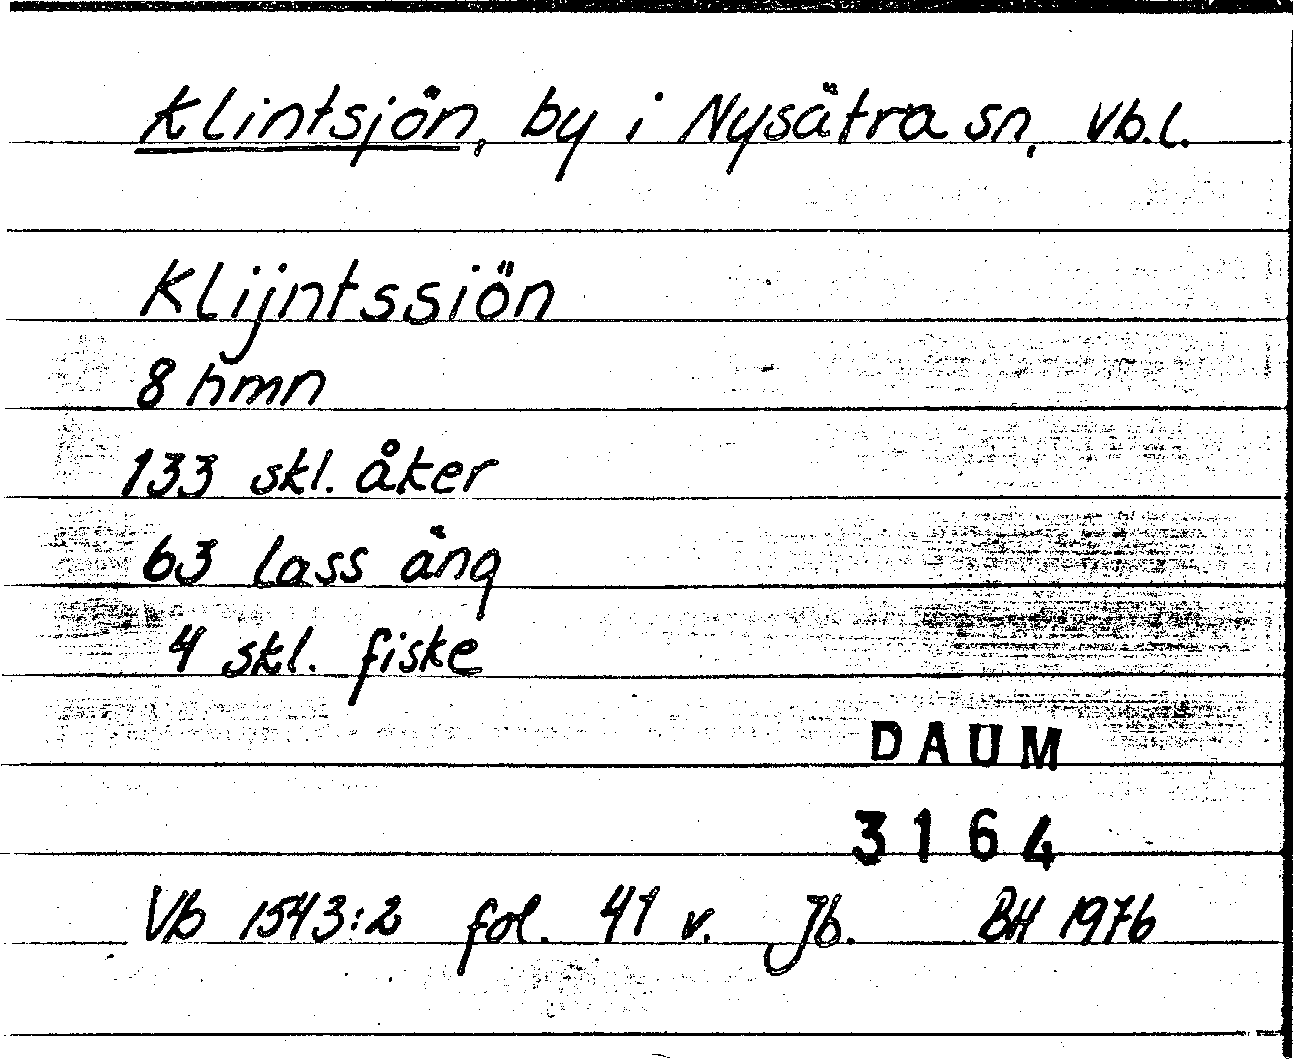 Klintsjön, by i Nysätra sn, Vb.l.
Klijntssiön
8 hmn
133 skl. åker
63 lass äng
4 skl. fiske
DAUM
3164
Vb 1543:2 fol. 41 v. Jb. BH 1976